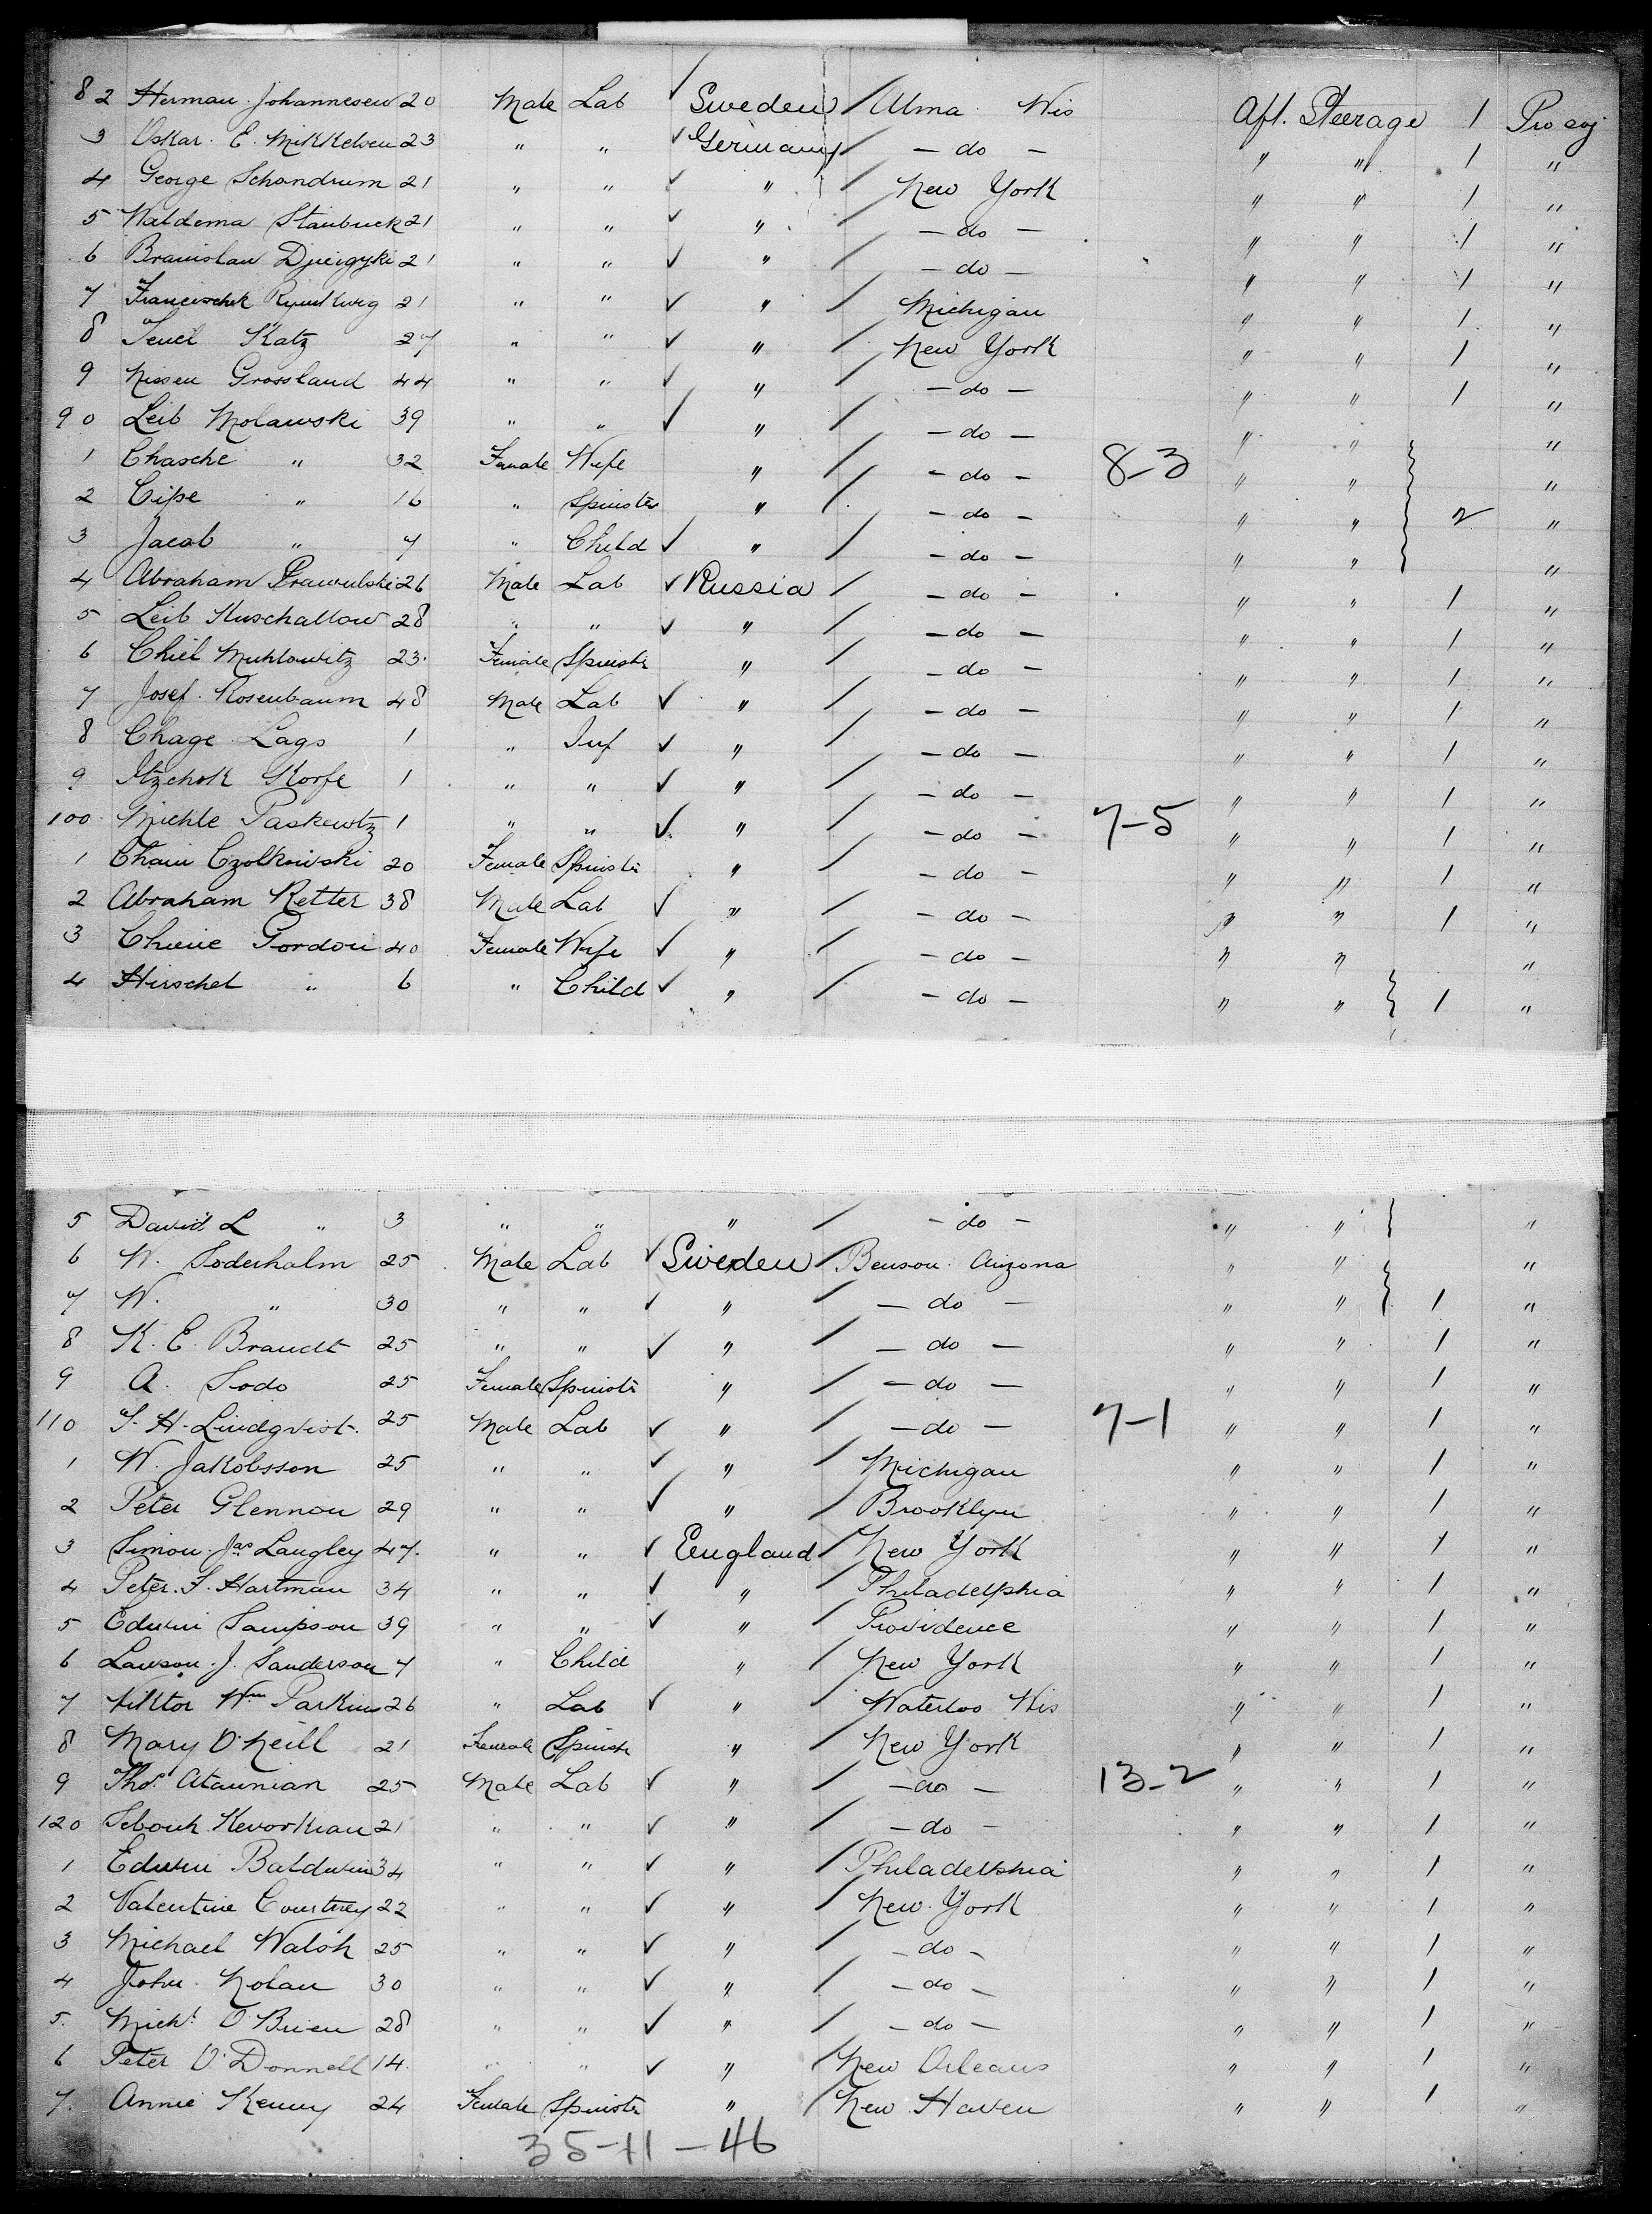 82 Herman Johannesen 20 Male Lab Sweden / Alma Wis Aft. Steerage 1 Pro soj
3 Oskar. E. Mikkelsen 23 " " ✓ Germany / — do — " " 1 "
4 George Schandrum 21 " " ✓ " / New York " " 1 "
5 Waldema Staubuck 21 " " ✓ " / — do — " " 1 "
6 21 " " ✓ " / — do — " " 1 "
7 21 " " ✓ " / Michigan " " 1 "
8 Katz 27 " " ✓ " / New York " " 1 "
9 Nissen Grossland 44 " " ✓ " / — do — " " 1 "
90 Leib Molawski 39 " " ✓ " / — do — " " "
1 Chasche " 32 Female Wife " / — do — 8-3 " " "
2 Cipe " 16 " Spinster " / — do — " " 2 "
3 Jacob " 7 " Child ✓ " / — do — " " "
4 Abraham Prawulski 26 Male Lab ✓ Russia / — do — " " 1 "
5 Leib Kuschallow 28 " " ✓ " / — do — " " 1 "
6 Chiel Muhlowitz 23 Female Spinstr " / — do — " " 1 "
7 Josef Rosenbaum 48 Male Lab ✓ " / — do — " " 1 "
8 Chage Lags 1 " Inf ✓ " / — do — " " 1 "
9 Itzchok Korfe 1 " " ✓ " / — do — " " 1 "
100 Michle Paskewtz 1 " " ✓ " / — do — 7-5 " " 1 "
1 Chain Czolkowski 20 Female Spinstr " / — do — " " 1 "
2 Abraham Retter 38 Male Lab ✓ " / — do — " " 1 "
3 Gordon 40 Female Wife ✓ " / — do — " " "
4 Hirschel " 6 " Child ✓ " / — do — " " 1 "
5 David L " 3 " " " / — do — " " "
6 W. Soderholm 25 Male Lab ✓ Sweden / Benson Arizona " " "
7 W. " 30 " " ✓ " / — do — " " 1 "
8 K. E. Brandt 25 " " ✓ " / — do — " " 1 "
9 A. Sodo 25 Female Spinstr " / — do — " " 1 "
110 S. H. Lindqvist 25 Male Lab ✓ " / — do — 7-1 " " 1 "
1 W. Jakobsson 25 " " ✓ " / Michigan " " 1 "
2 Peter Glennon 29 " " ✓ " / Brooklyn " " 1 "
3 Simon Jas Langley 47 " " ✓ England / New York " " 1 "
4 Peter. S. Hartman 34 " " ✓ " / Philadelphia " " 1 "
5 Edwin Sampson 39 " " ✓ " / Providence " " 1 "
6 Lawson. J. Sanderson 7 " Child " / New York " " 1 "
7 Wm Parkins 26 " Lab ✓ " / Waterloo Wis " " 1 "
8 Mary O'Neill 21 Female Spinstr " / New York " " 1 "
9 Thos. Ataunian 25 Male Lab ✓ " / — do — 13-2 " " 1 "
120 Sebouh Kevorkian 21 " " ✓ " / — do — " " 1 "
1 Edwin Baldwin 34 " " ✓ " / Philadelphia " " 1 "
2 Valentine Courtney 22 " " ✓ " / New York " " 1 "
3 Michael Walsh 25 " " ✓ " / — do — " " 1 "
4 John Nolan 30 " " ✓ " / — do — " " 1 "
5. Michl O'Brien 28 " " ✓ " / — do — " " 1 "
6 Peter O'Donnell 14 " " ✓ " / New Orleans " " 1 "
7. Annie Kenny 24 Female Spinstr " / New Haven " " 1 "
35-11-46